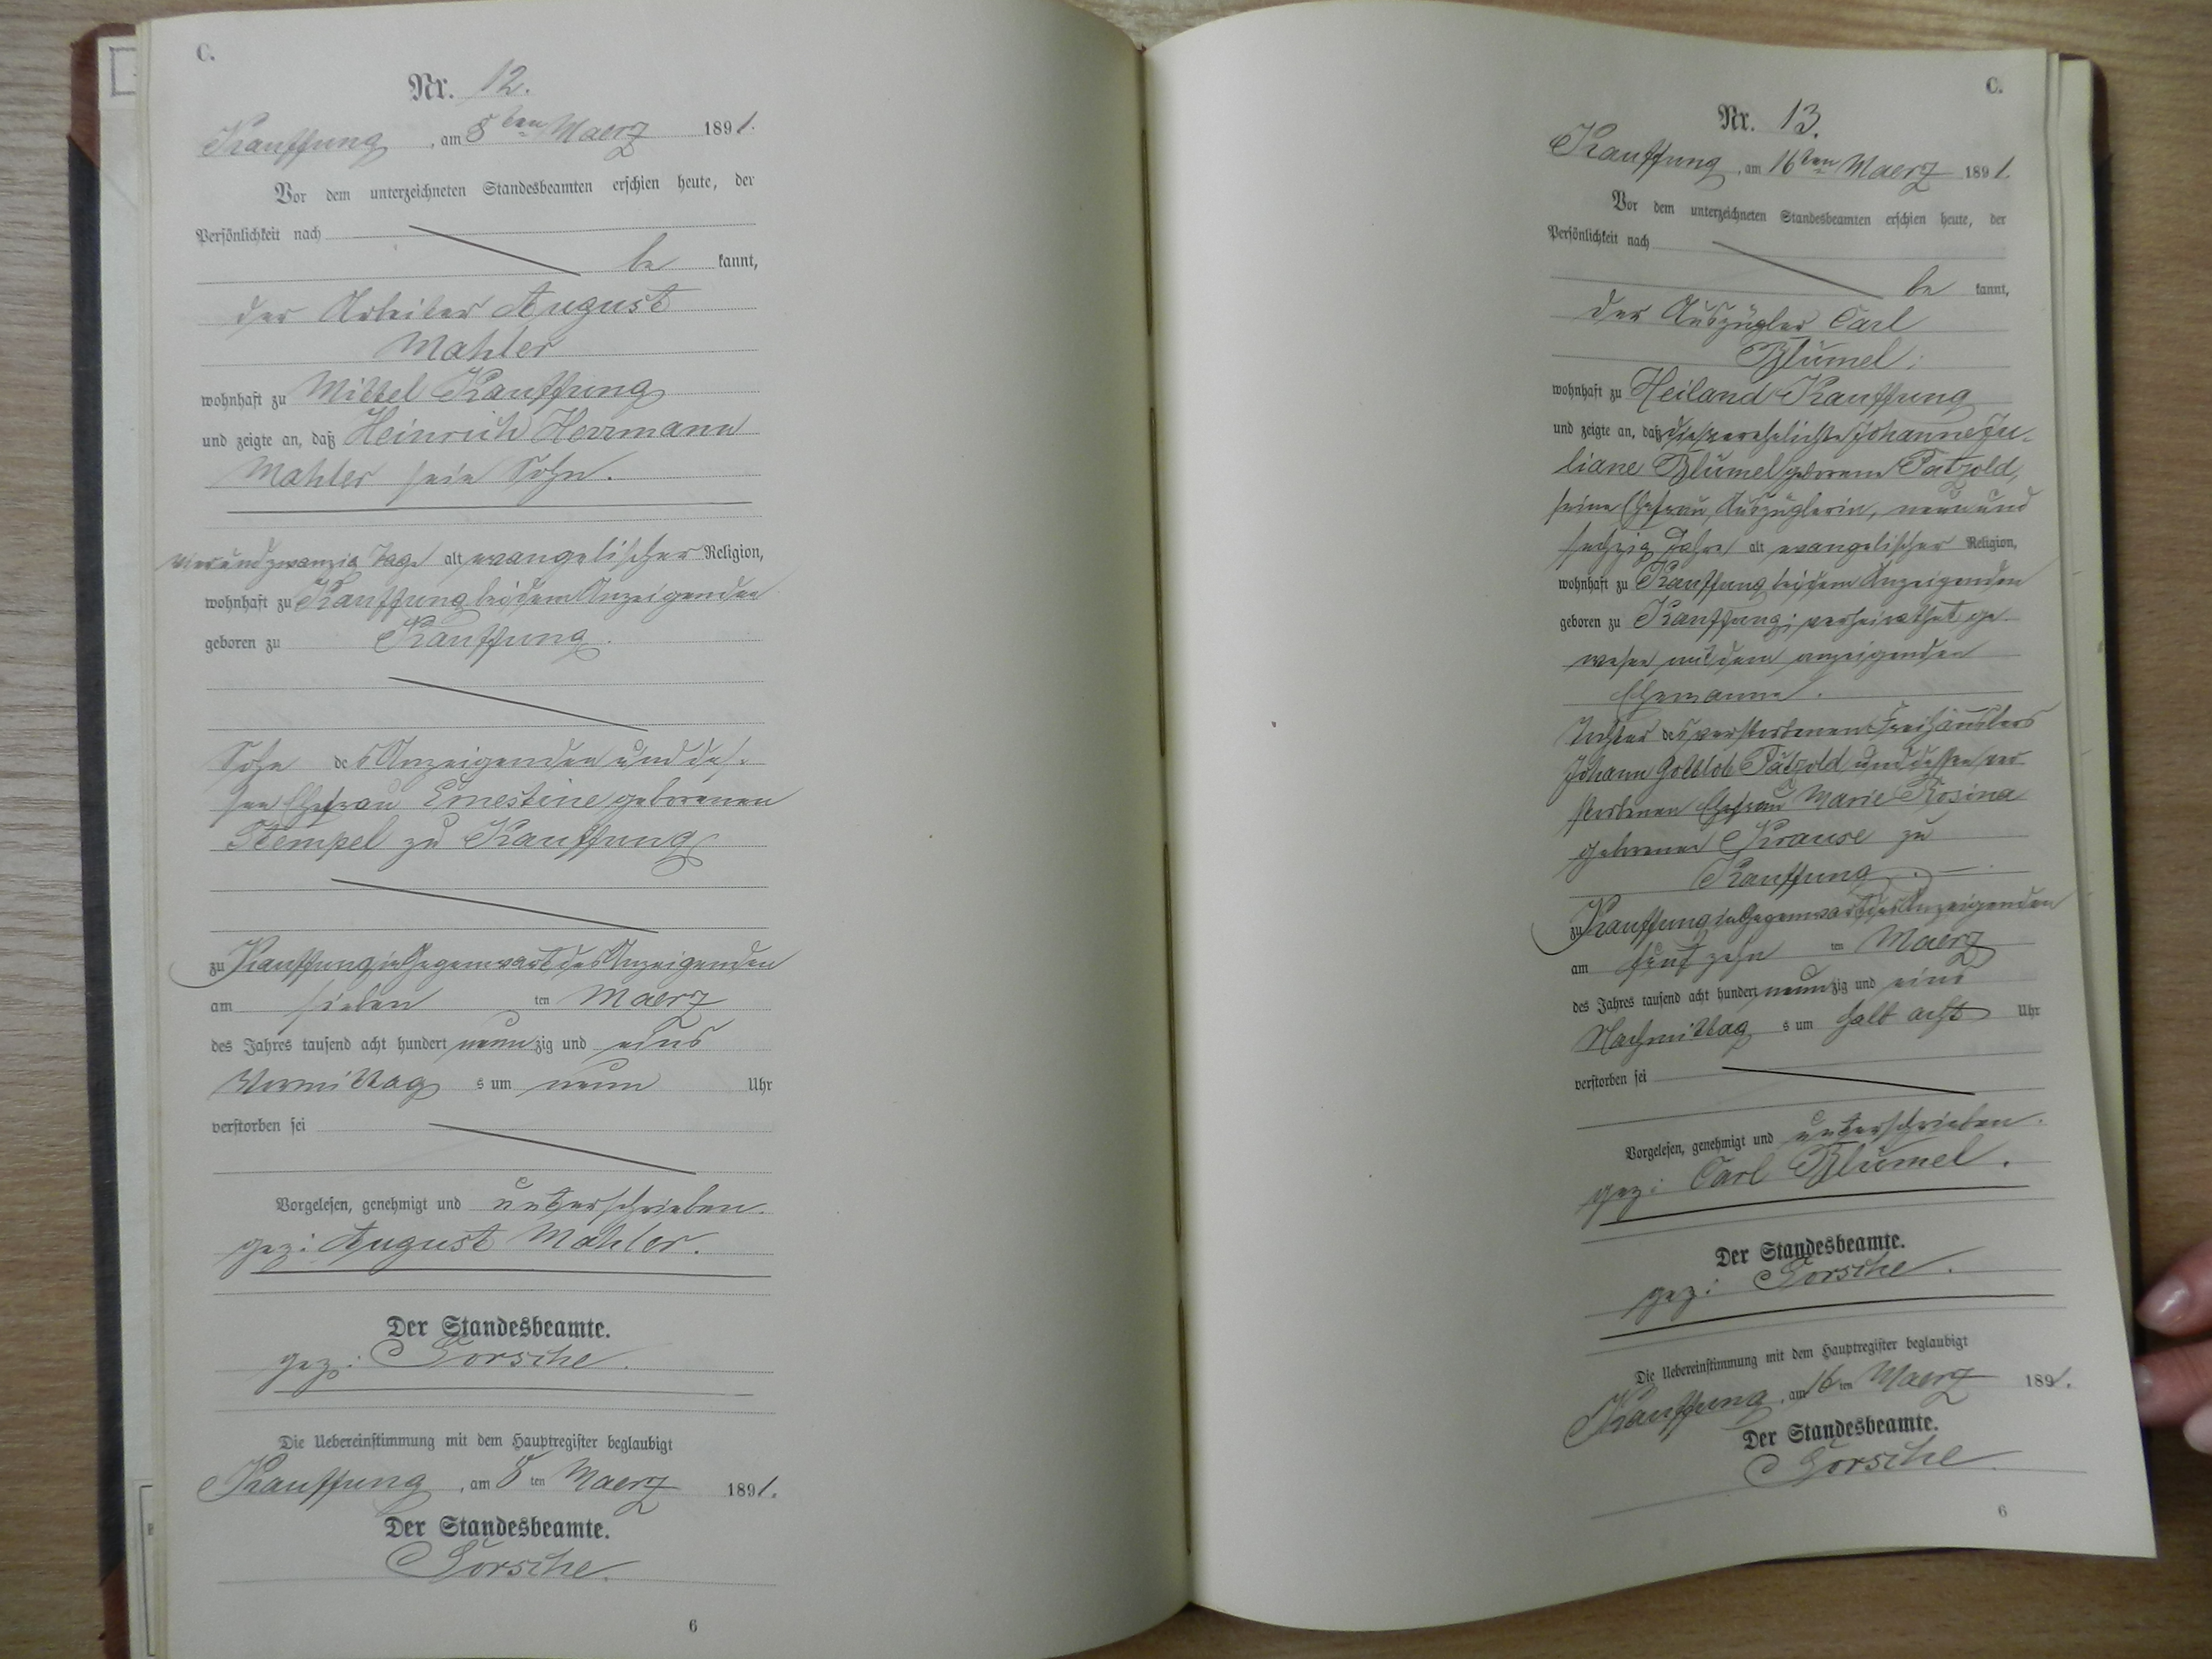 C.
Nr. 12.
Kauffung, am 8ten Maerz 1891.
Vor dem unterzeichneten Standesbeamten erschien heute, der
Persönlichkeit nach
be kannt,
der Arbeiter August
Mahler
wohnhaft zu Mittel Kauffung
und zeigte an, daß Heinrich Herrmann
Mahler sein Sohn.
vierundzwanzig Tage alt evangelischer Religion,
wohnhaft zu Kauffung bei dem Anzeigenden
geboren zu Kauffung.
Sohn des Anzeigenden und des-
sen Ehefrau Ernestine geborenen
Stempel zu Kauffung
zu Kauffung in Gegenwart des Anzeigenden
am sieben ten Maerz
des Jahres tausend acht hundert neunzig und eins
Vormittag s um neun Uhr
verstorben sei
Vorgelesen, genehmigt und unterschrieben.
gez: August Mahler.
Der Standesbeamte.
gez: Gorsche.
Die Uebereinstimmung mit dem Hauptregister beglaubigt
Kauffung, am 8ten Maerz 1891.
Der Standesbeamte.
Gorsche.
6
C.
Nr. 13.
Kauffung, am 16ten Maerz 1891.
Vor dem unterzeichneten Standesbeamten erschien heute, der
Persönlichkeit nach
be kannt,
der Auszügler Carl
Blümel;
wohnhaft zu Heiland Kauffung
und zeigte an, daß die verehelichte Johanne Ju-
liane Blümel geborene Pätzold,
seine Ehefrau, Auszüglerin, neunund
sechzig Jahre alt evangelischer Religion,
wohnhaft zu Kauffung bei dem Anzeigenden
geboren zu Kauffung; verheirathet ge-
wesen mit dem anzeigenden
Ehemanne.
Tochter des verstorbenen Freihäuslers
Johann Gottlob Pätzold und dessen ver-
storbenen Ehefrau Marie Rosina
geborenen Krause zu
Kauffung
zu Kauffung in Gegenwart des Anzeigenden
am fünfzehn ten Maerz
des Jahres tausend acht hundert neunzig und eins
Nachmittag s um halb acht Uhr
verstorben sei
Vorgelesen, genehmigt und unterschrieben.
gez: Carl Blümel.
Der Standesbeamte.
gez: Gorsche.
Die Uebereinstimmung mit dem Hauptregister beglaubigt
Kauffung, am 16ten Maerz 1891.
Der Standesbeamte.
Gorsche.
6